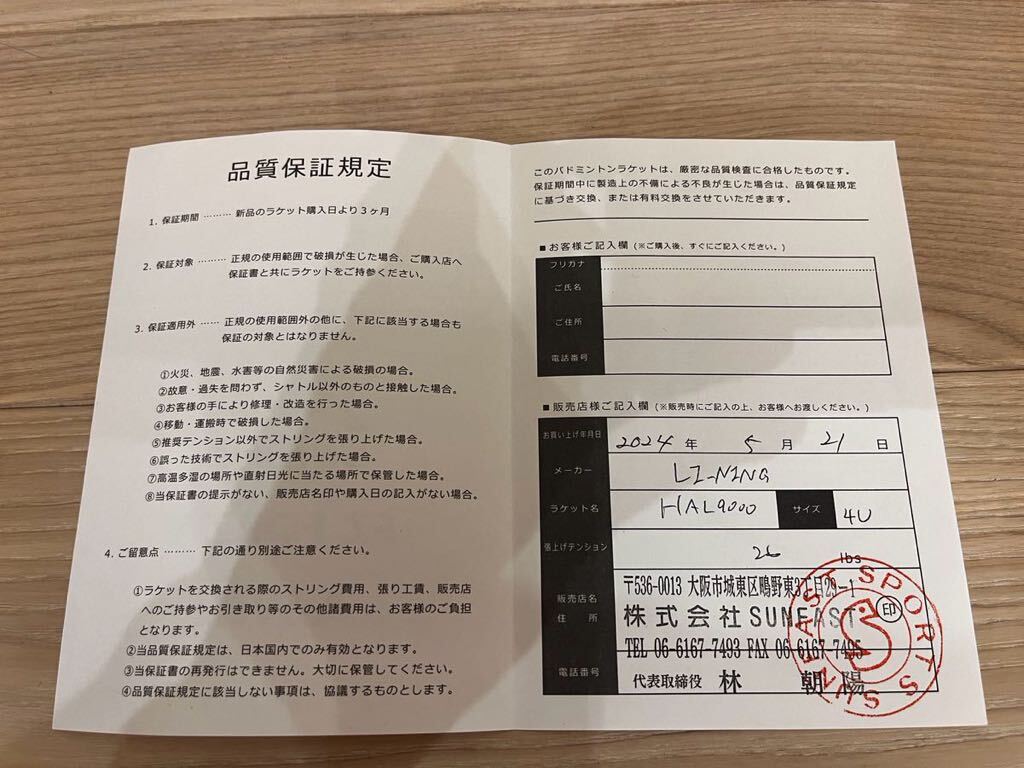 品質保証規定
1. 保証期間 ……… 新品のラケット購入日より3ヶ月
2. 保証対象 ……… 正規の使用範囲で破損が生じた場合、ご購入店へ
保証書と共にラケットをご持参ください。
3. 保証適用外 …… 正規の使用範囲外の他に、下記に該当する場合も
保証の対象とはなりません。
①火災、地震、水害等の自然災害による破損の場合。
②故意・過失を問わず、シャトル以外のものと接触した場合。
③お客様の手により修理・改造を行った場合。
④移動・運搬時で破損した場合。
⑤推奨テンション以外でストリングを張り上げた場合。
⑥誤った技術でストリングを張り上げた場合。
⑦高温多湿の場所や直射日光に当たる場所で保管した場合。
⑧当保証書の提示がない、販売店名印や購入日の記入がない場合。
4. ご留意点 ……… 下記の通り別途ご注意ください。
①ラケットを交換される際のストリング費用、張り工賃、販売店
へのご持参やお引き取り等のその他諸費用は、お客様のご負担
となります。
②当品質保証規定は、日本国内でのみ有効となります。
③当保証書の再発行はできません。大切に保管してください。
④品質保証規定に該当しない事項は、協議するものとします。
このバドミントンラケットは、厳密な品質検査に合格したものです。
保証期間中に製造上の不備による不良が生じた場合は、品質保証規定
に基づき交換、または有料交換をさせていただきます。
■お客様ご記入欄 (※ご購入後、すぐにご記入ください。)
フリガナ
ご氏名
ご住所
電話番号
■販売店様ご記入欄 (※販売時にご記入の上、お客様へお渡しください。)
お買い上げ年月日 2024 年 5 月 21 日
メーカー LI-NING
ラケット名 HAL9000 サイズ 4U
張上げテンション 26 lbs
販売店名
住所
〒536-0013 大阪市城東区鴫野東3丁目29-1
株式会社SUNEAST
TEL 06-6167-7493 FAX 06-6167-7495
電話番号
代表取締役 林 朝陽
印
SUNEAST SPORTS